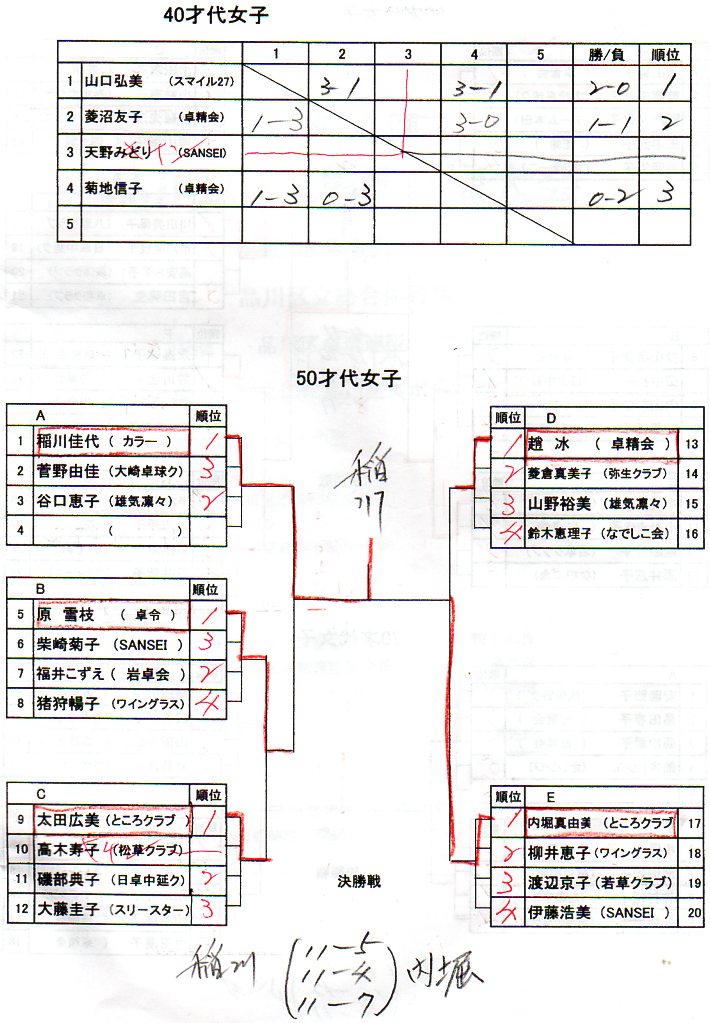 40才代女子
1 2 3 4 5 勝/負 順位
1 山口弘美 (スマイル27) 3-1 3-1 2-0 1
2 菱沼友子 (卓精会) 1-3 3-0 1-1 2
3 天野みどり (SANSEI)
4 菊地信子 (卓精会) 1-3 0-3 0-2 3
5
50才代女子
A 順位
1 稲川佳代 ( カラー ) 1
2 菅野由佳 (大崎卓球ク) 3
3 谷口恵子 (雄気凛々) 2
4 ( )
稲川
順位 D
1 趙 冰 ( 卓精会 ) 13
2 菱倉真美子 (弥生クラブ) 14
3 山野裕美 (雄気凛々) 15
4 鈴木恵理子 (なでしこ会) 16
B 順位
5 原 雪枝 ( 卓令 ) 1
6 柴崎菊子 (SANSEI ) 3
7 福井こずえ ( 岩卓会 ) 2
8 猪狩暢子 (ワイングラス) 4
C 順位
9 太田広美 (ところクラブ ) 1
10 高木寿子 (松草クラブ)
11 磯部典子 (日卓中延ク) 2
12 大藤圭子 (スリースター) 3
順位 E
1 内堀真由美 (ところクラブ 17
2 柳井恵子 (ワイングラス) 18
3 渡辺京子 (若草クラブ) 19
4 伊藤浩美 (SANSEI ) 20
決勝戦
稲川 (11-5 11-4 11-7) 内堀